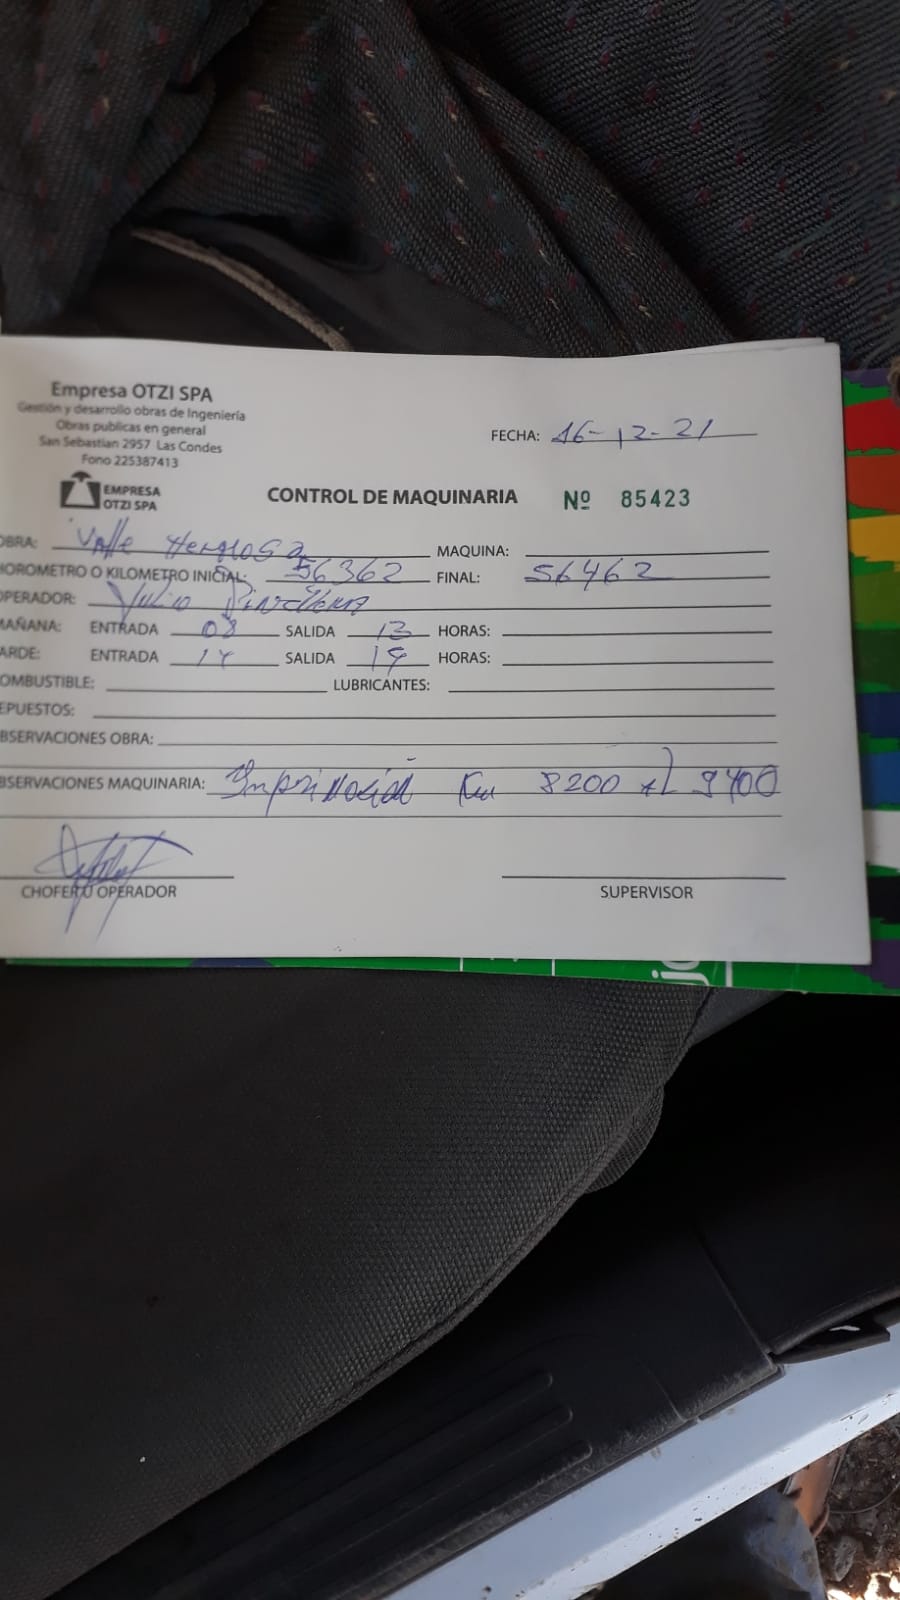 Empresa OTZI SPA
Gestión y desarrollo obras de Ingeniería
Obras publicas en general
San Sebastian 2957 Las Condes
Fono 225387413
FECHA: 16-12-21
EMPRESA
OTZI SPA
CONTROL DE MAQUINARIA Nº 85423
OBRA: Valle Hermoso MAQUINA:
HOROMETRO O KILOMETRO INICIAL: 56362 FINAL: 56462
OPERADOR: Julio
MAÑANA: ENTRADA 08 SALIDA 13 HORAS:
TARDE: ENTRADA 14 SALIDA 19 HORAS:
COMBUSTIBLE: LUBRICANTES:
REPUESTOS:
OBSERVACIONES OBRA:
OBSERVACIONES MAQUINARIA: Km 8200 al 9400
CHOFER U OPERADOR SUPERVISOR